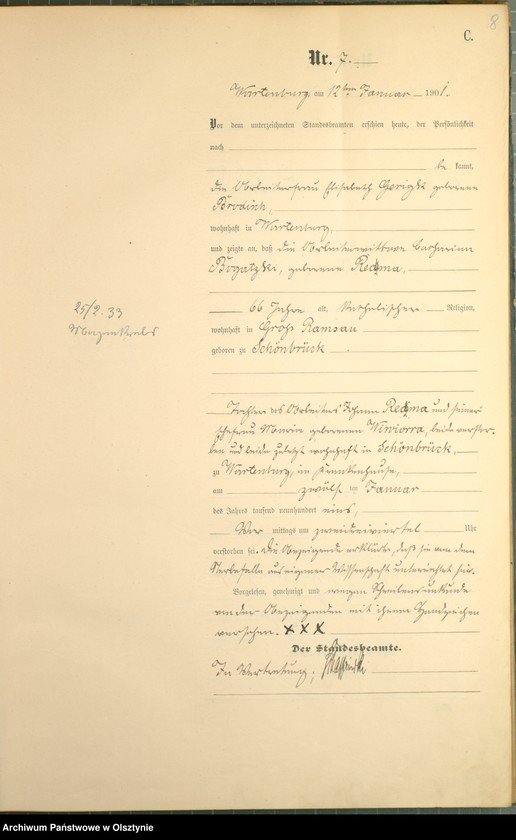 8
C.
Nr. 7.
Wartenburg, am 12ten Januar 1901.
Vor dem unterzeichneten Standesbeamten erschien heute, der Persönlichkeit
nach
be kannt,
die Arbeiterfrau Elisabeth geborene
wohnhaft in Wartenburg,
und zeigte an, daß die Arbeiterwittwe Catharina
Bogatzki, geborene
66 Jahre alt, katholischer Religion,
wohnhaft in Groß Ramsau
geboren zu Schönbrück
Tochter des Arbeiters Johann und seiner
Ehefrau Maria geborenen Wiviorra, beide verstor-
ben und beide zuletzt wohnhaft in Schönbrück,
zu Wartenburg, im Krankenhause,
am zwölf ten Januar
des Jahres tausend neunhundert eins,
Vor mittags um zweidreiviertel Uhr
verstorben sei. Die Anzeigende erklärte, daß sie von dem
Sterbefalle aus eigener Wissenschaft unterrichtet sei.
Vorgelesen, genehmigt und wegen Schreibensunkunde
von der Anzeigenden mit ihrem Handzeichen
versehen. XXX
Der Standesbeamte.
In Vertretung:
25/2. 33
Magenkrebs
Archiwum Państwowe w Olsztynie